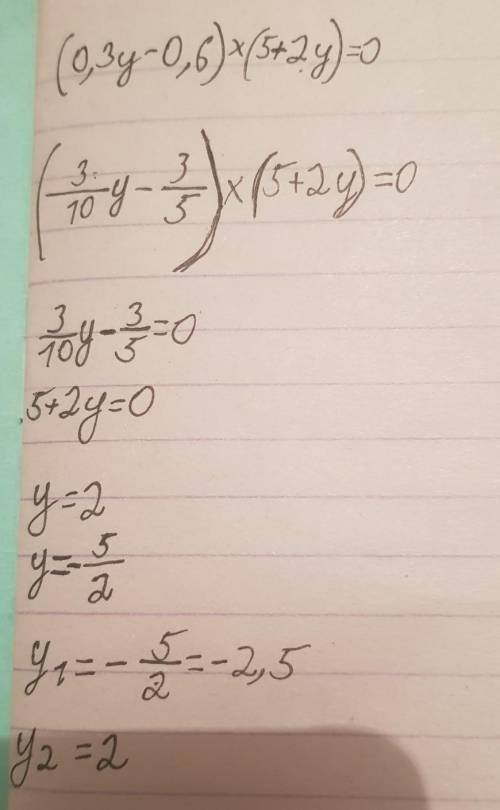 (0,3y-0,6)×(5+2y)=0
(3/10 y - 3/5)×(5+2y)=0
3/10 y - 3/5 = 0
5+2y=0
y=2
y=-5/2
y₁=-5/2=-2,5
y₂=2